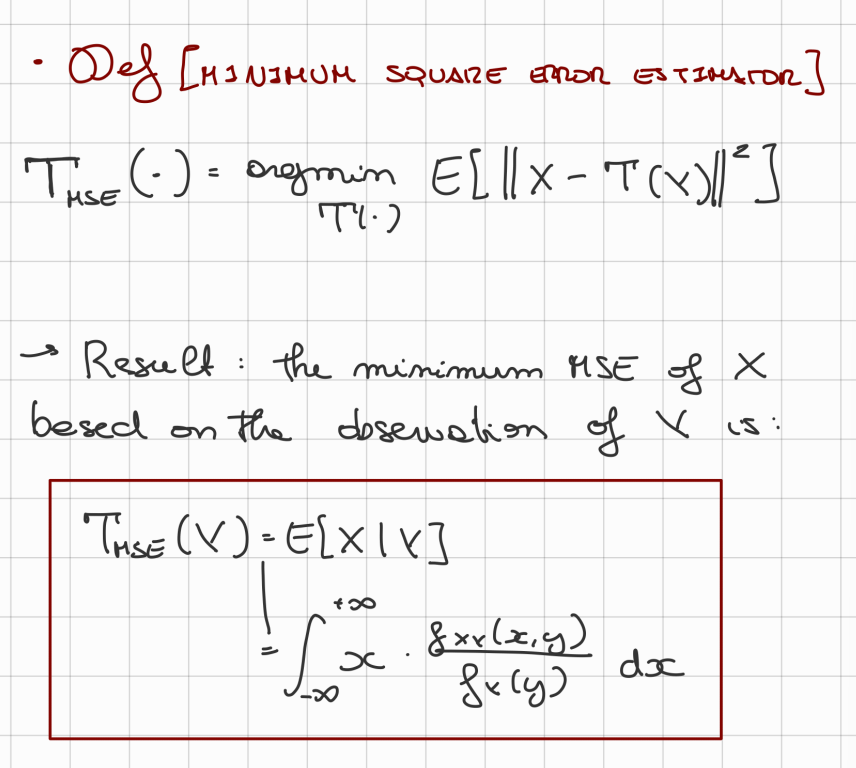 · Def [MINIMUM SQUARE ERROR ESTIMATOR]
T_MSE(·) = argmin_{T(·)} E[||X - T(Y)||²]
→ Result : the minimum MSE of X
based on the observation of Y is:
T_MSE(Y) = E[X|Y]
= ∫_{-∞}^{+∞} x · f_{XY}(x,y) / f_Y(y) dx